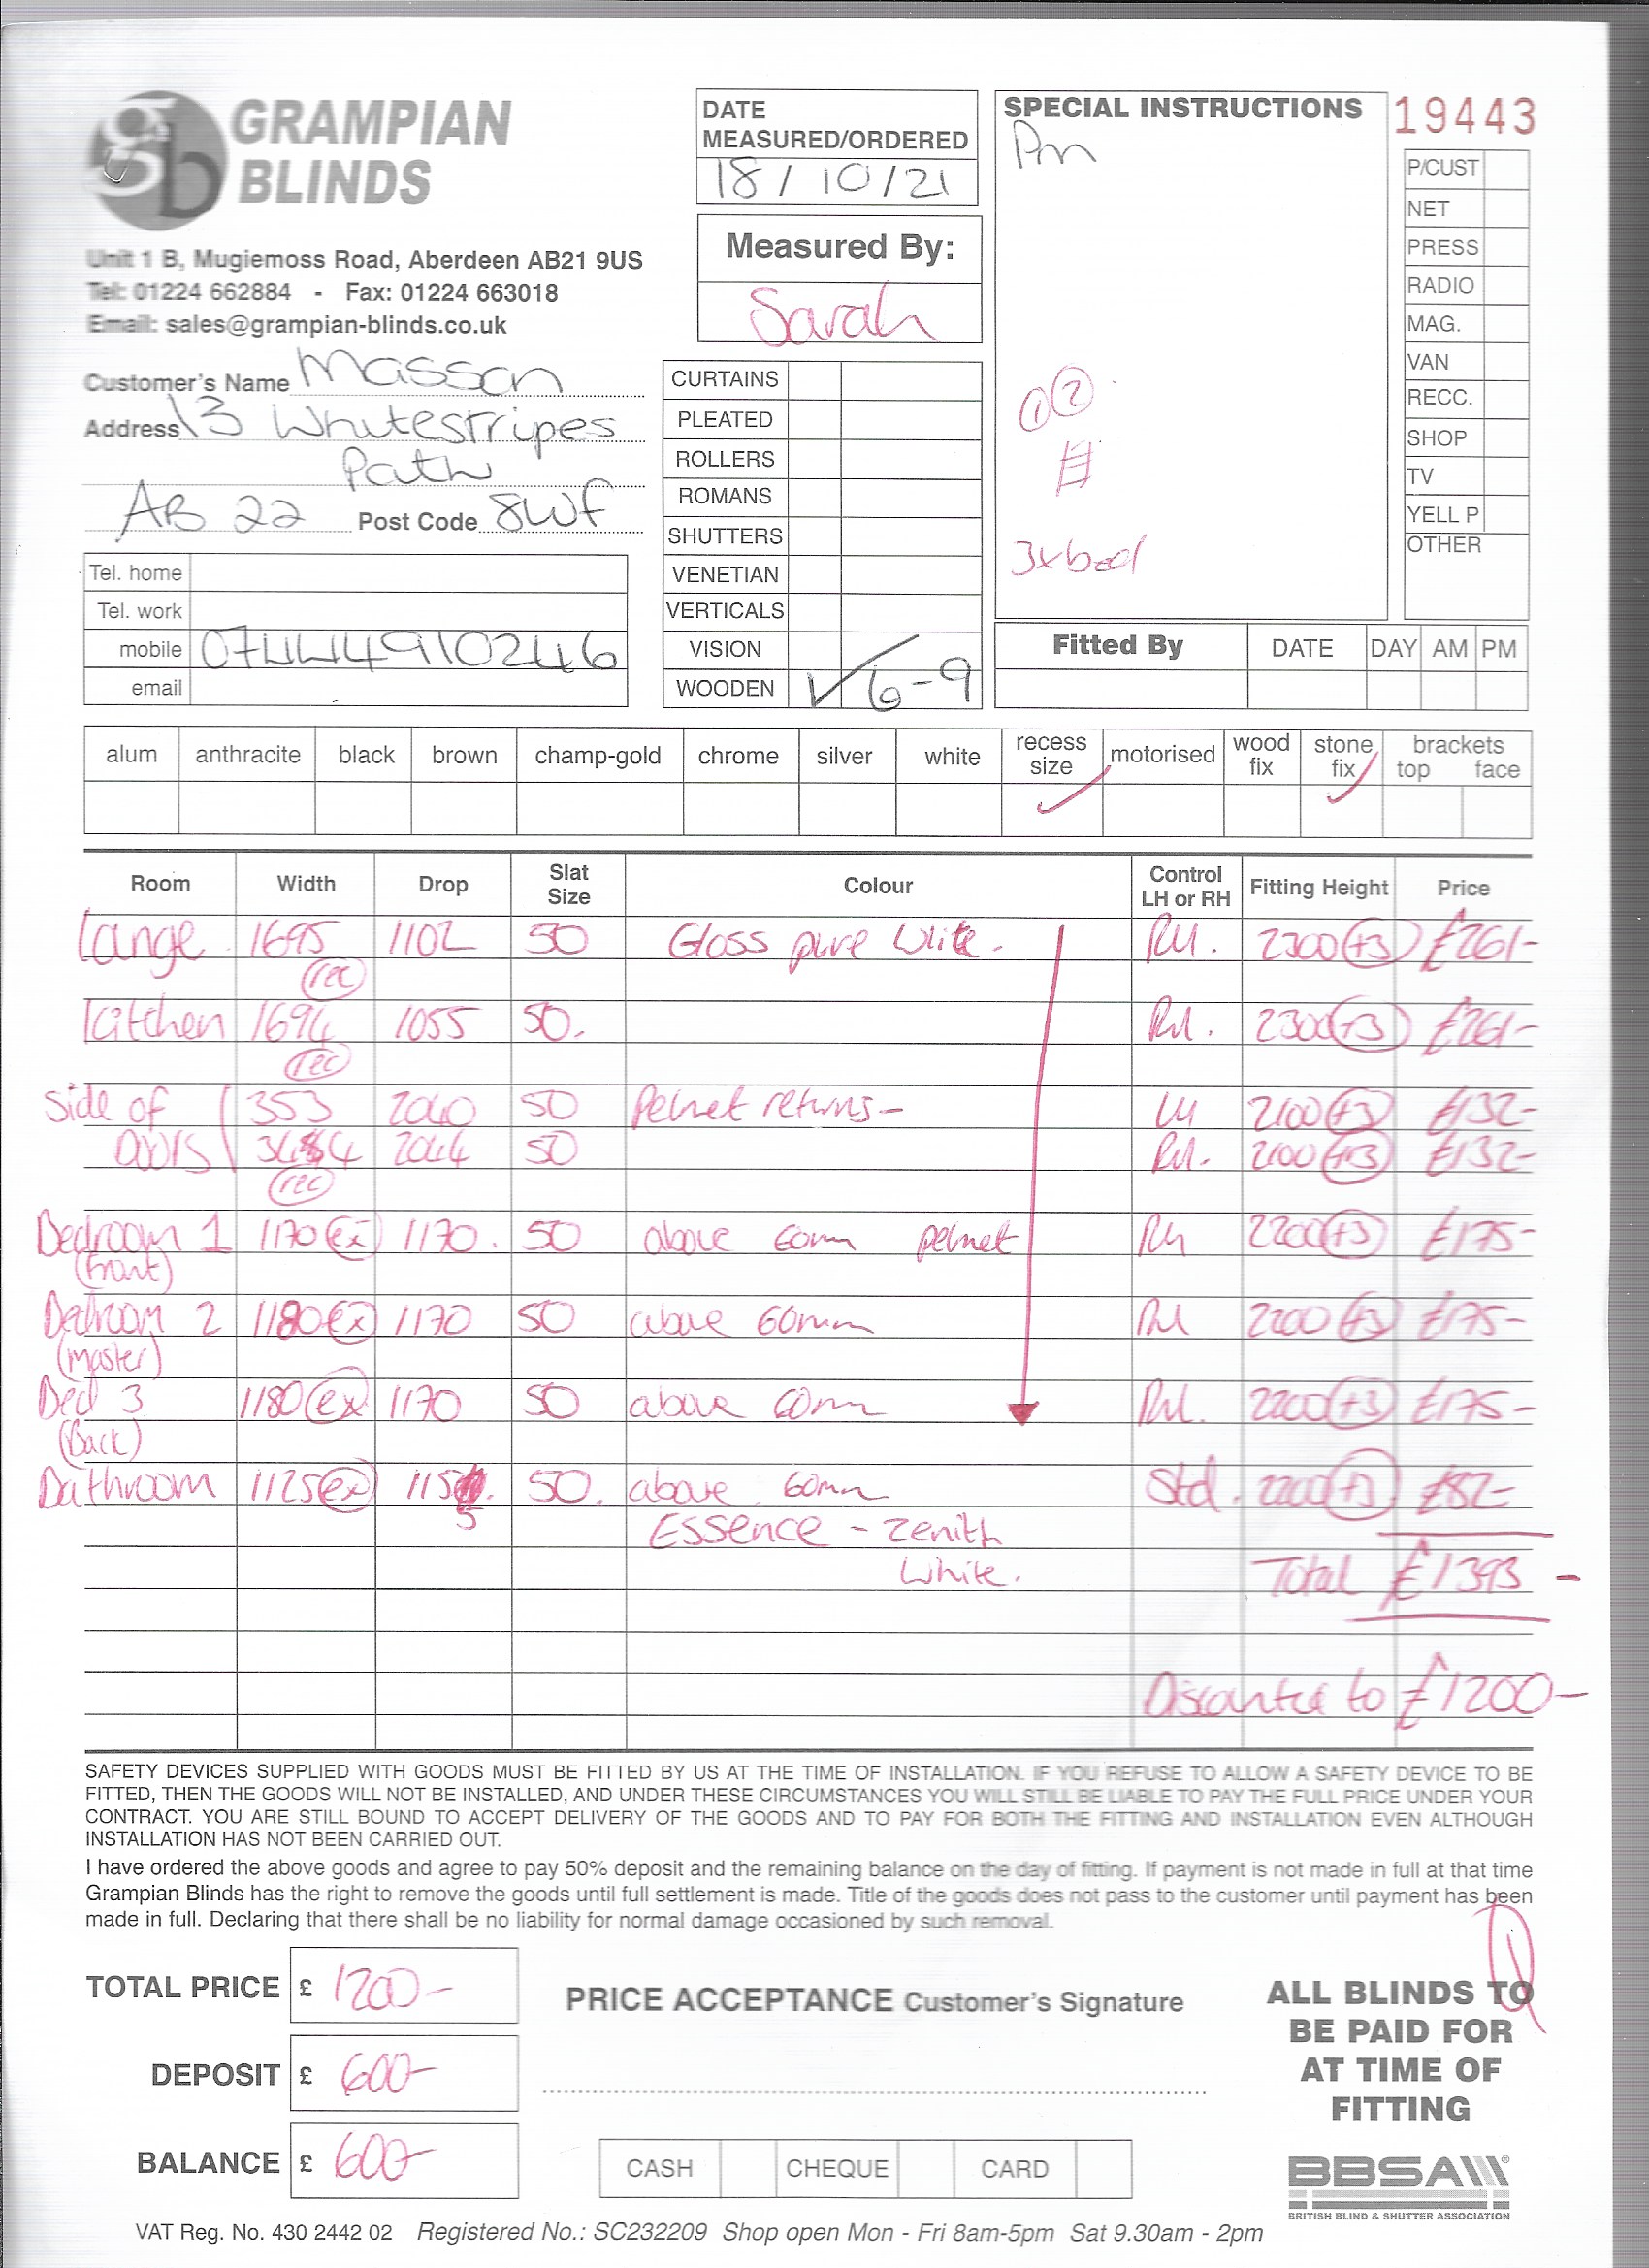 GRAMPIAN
BLINDS
Unit 1 B, Mugiemoss Road, Aberdeen AB21 9US
Tel: 01224 662884 - Fax: 01224 663018
Email: sales@grampian-blinds.co.uk
Customer's Name Masson
Address 13 Whitestripes
Path
AB 22 Post Code 8WF
Tel. home
Tel. work
mobile 07444910246
email
DATE
MEASURED/ORDERED
18/10/21
Measured By:
Sarah
CURTAINS
PLEATED
ROLLERS
ROMANS
SHUTTERS
VENETIAN
VERTICALS
VISION
WOODEN ✓ 6-9
SPECIAL INSTRUCTIONS
Pm
1 2
3xbed
19443
P/CUST
NET
PRESS
RADIO
MAG.
VAN
RECC.
SHOP
TV
YELL P
OTHER
Fitted By DATE DAY AM PM
alum anthracite black brown champ-gold chrome silver white recess size motorised wood fix stone fix brackets top face
✓ ✓
Room Width Drop Slat Size Colour Control LH or RH Fitting Height Price
Lounge 1695 1102 50 Gloss pure White. RH. 2300 (+3) £261-
(rec)
Kitchen 1694 1055 50. RH. 2300 (+3) £261-
(rec)
Side of 353 2040 50 Pelmet returns- LH 2100 (+3) £132-
Doors 2044 50 RH. 2100 (+3) £132-
(rec)
Bedroom 1 1170 (ex) 1170. 50 above 60mm pelmet RH 2200 (+3) £175-
(Front)
Bedroom 2 1180 (ex) 1170 50 above 60mm RH 2200 (+3) £175-
(Master)
Bed 3 1180 (ex) 1170 50 above 60mm RH. 2200 (+3) £175-
(Back)
Bathroom 1125 (ex) 1155 50. above 60mm Std. 2200 (+3) £82-
Essence - Zenith
White.
Total £1393 -
Discounted to £1200-
SAFETY DEVICES SUPPLIED WITH GOODS MUST BE FITTED BY US AT THE TIME OF INSTALLATION. IF YOU REFUSE TO ALLOW A SAFETY DEVICE TO BE
FITTED, THEN THE GOODS WILL NOT BE INSTALLED, AND UNDER THESE CIRCUMSTANCES YOU WILL STILL BE LIABLE TO PAY THE FULL PRICE UNDER YOUR
CONTRACT. YOU ARE STILL BOUND TO ACCEPT DELIVERY OF THE GOODS AND TO PAY FOR BOTH THE FITTING AND INSTALLATION EVEN ALTHOUGH
INSTALLATION HAS NOT BEEN CARRIED OUT.
I have ordered the above goods and agree to pay 50% deposit and the remaining balance on the day of fitting. If payment is not made in full at that time
Grampian Blinds has the right to remove the goods until full settlement is made. Title of the goods does not pass to the customer until payment has been
made in full. Declaring that there shall be no liability for normal damage occasioned by such removal.
TOTAL PRICE £ 1200-
DEPOSIT £ 600-
BALANCE £ 600-
PRICE ACCEPTANCE Customer's Signature
CASH CHEQUE CARD
ALL BLINDS TO
BE PAID FOR
AT TIME OF
FITTING
BBSA
BRITISH BLIND & SHUTTER ASSOCIATION
VAT Reg. No. 430 2442 02 Registered No.: SC232209 Shop open Mon - Fri 8am-5pm Sat 9.30am - 2pm